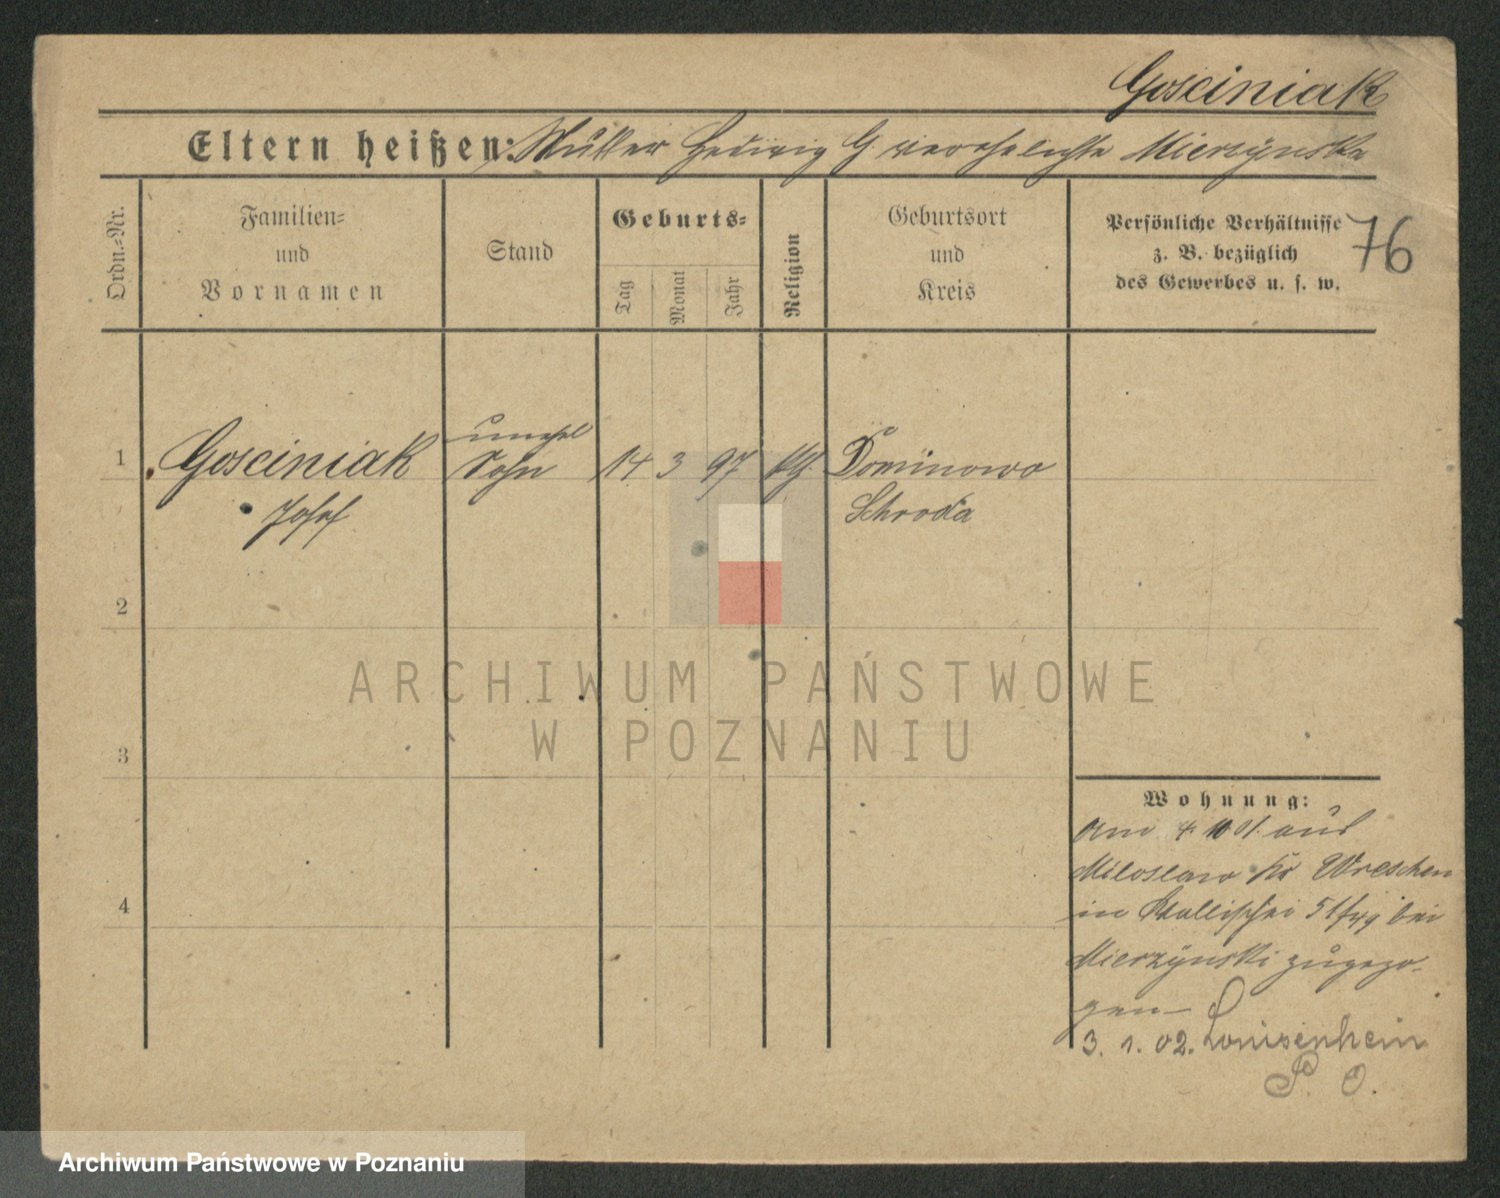 Gosciniak
Eltern heißen: Mutter Hedwig G. verehelichte Mierzÿnska
76
Ordn.-Nr.
Familien-
und
Vornamen
Stand
Geburts-
Tag
Monat
Jahr
Religion
Geburtsort
und
Kreis
Persönliche Verhältnisse
z. B. bezüglich
des Gewerbes u. s. w.
1
Gosciniak
Josef
unehel
Sohn
14 3 97
Dominowo
Schroda
2
3
4
Wohnung:
Am 4 10 01 aus
Miloslaw Kr Wreschen
in Wallischei bei
Mierzÿnski zugezo-
gen
3. 1. 02. Louisenhain
P. O.
ARCHIWUM PAŃSTWOWE
W POZNANIU
Archiwum Państwowe w Poznaniu